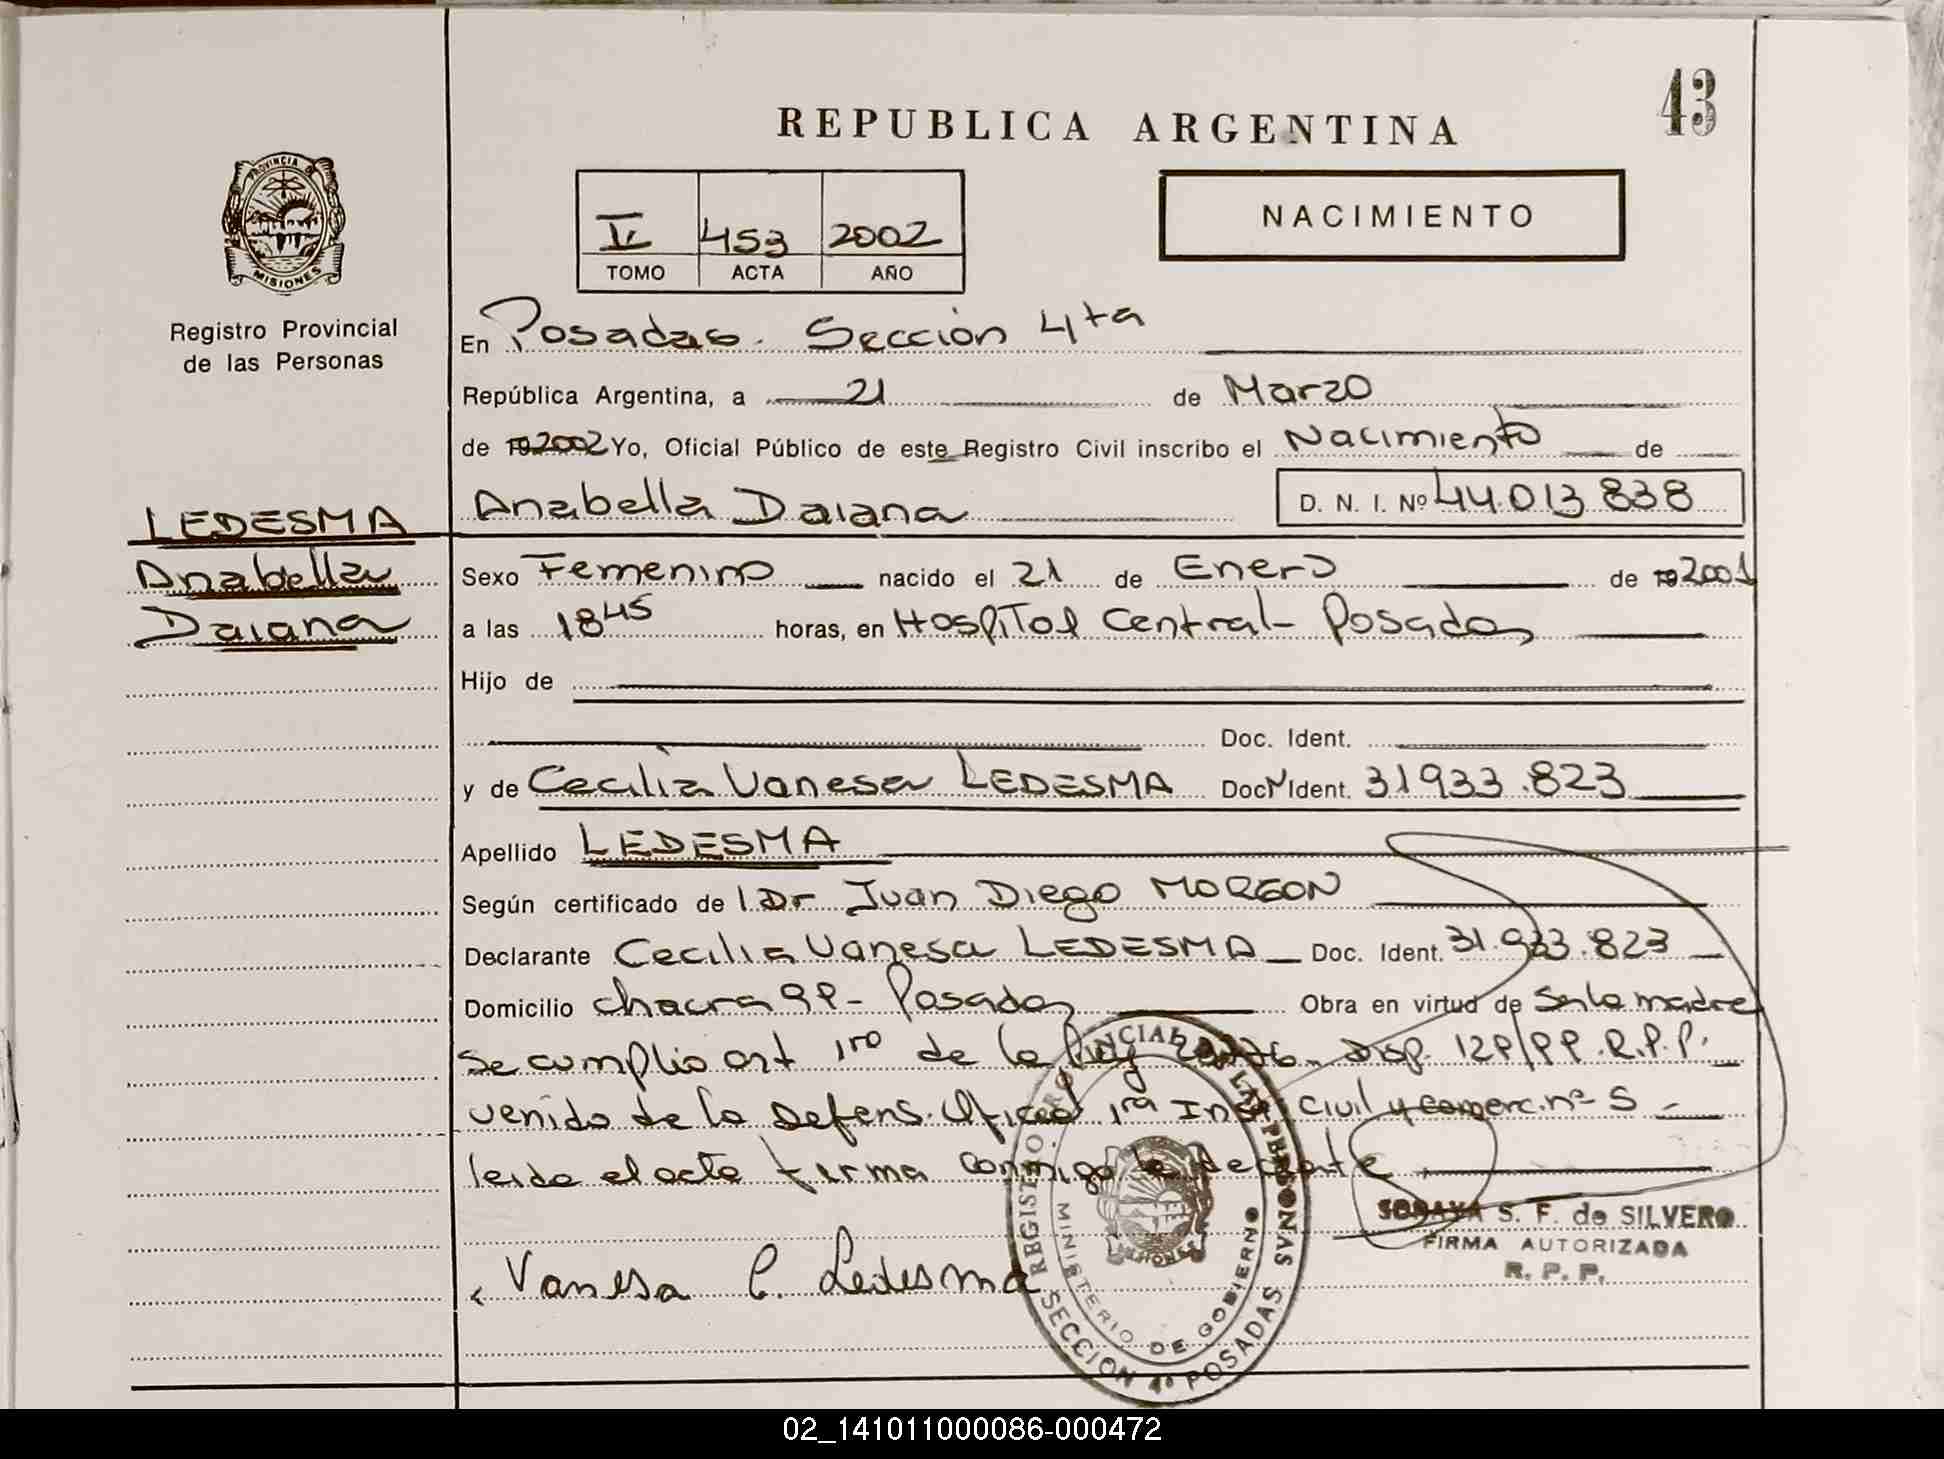 43
REPUBLICA ARGENTINA
PROVINCIA D
MISIONES
Registro Provincial
de las Personas
453 2002
TOMO ACTA AÑO
NACIMIENTO
En Posadas. Sección 4ta
República Argentina, a 21 de Marzo
de 2002 Yo, Oficial Público de este Registro Civil inscribo el Nacimiento de
LEDESMA
Anabella
Daiana
Anabella Daiana D. N. I. Nº 44.013.838
Sexo Femenino nacido el 21 de Enero de 2001
a las 18 45 horas, en Hospital Central - Posadas
Hijo de
Doc. Ident.
y de Cecilia Vanesa LEDESMA Doc. Ident. 31933.823
Apellido LEDESMA
Según certificado de Dr Juan Diego
Declarante Cecilia Vanesa LEDESMA Doc. Ident. 31.933.823
Domicilio chacra Posadas Obra en virtud de Ser la madre
se cumplio art 1ro de la Disp. R.P.P.
venido de la Defens. Oficial 1ra Inst Civil y comerc. nº 5
leido el acta firma conmigo la
SORAYA S. F. de SILVERO
FIRMA AUTORIZADA
R. P. P.
Vanesa C. Ledesma
REGISTRO PROVINCIAL DE LAS PERSONAS
MINISTERIO DE GOBIERNO
SECCION 4º POSADAS
02_141011000086-000472